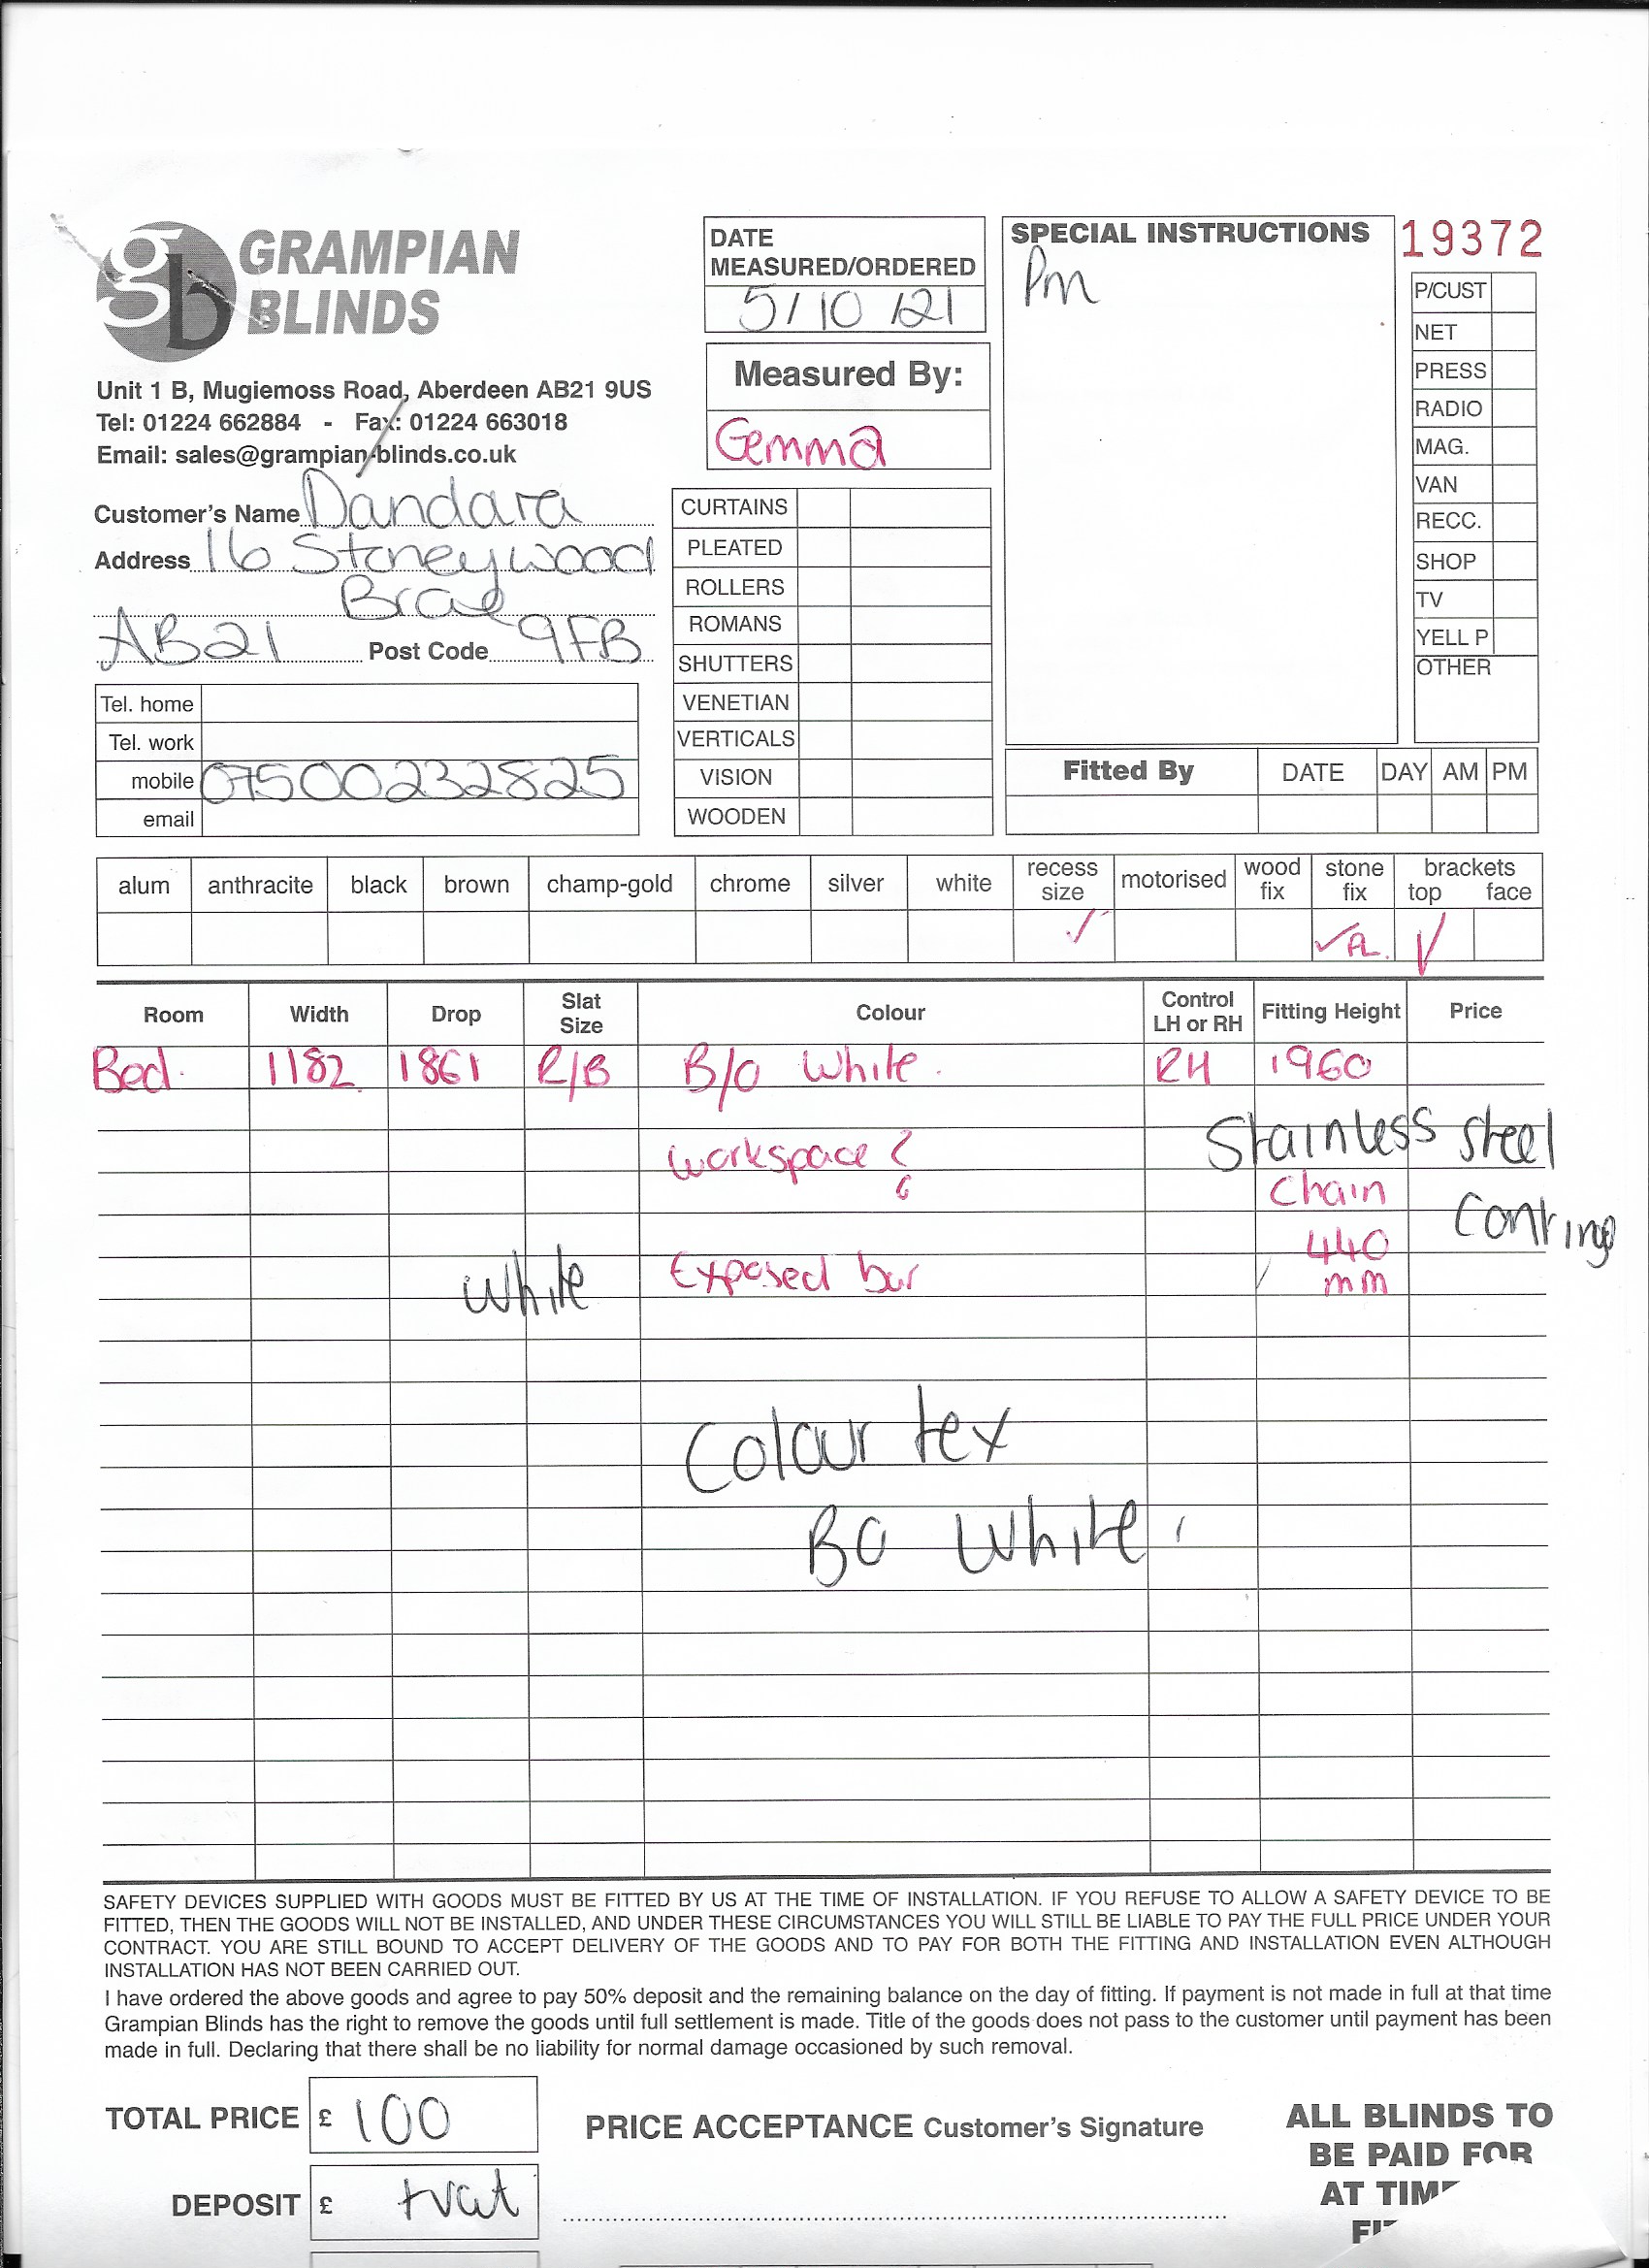 GRAMPIAN
BLINDS
gb
Unit 1 B, Mugiemoss Road, Aberdeen AB21 9US
Tel: 01224 662884 - Fax: 01224 663018
Email: sales@grampian-blinds.co.uk
Customer's Name Dandara
Address 16 Stoneywood
Brae
AB21 Post Code 9FB
Tel. home
Tel. work
mobile 07500232825
email
DATE
MEASURED/ORDERED
5/10/21
Measured By:
Gemma
CURTAINS
PLEATED
ROLLERS
ROMANS
SHUTTERS
VENETIAN
VERTICALS
VISION
WOODEN
SPECIAL INSTRUCTIONS
Pm
19372
P/CUST
NET
PRESS
RADIO
MAG.
VAN
RECC.
SHOP
TV
YELL P
OTHER
Fitted By DATE DAY AM PM
alum anthracite black brown champ-gold chrome silver white recess size motorised wood fix stone fix brackets top face
✓ ✓ ✓
Room Width Drop Slat Size Colour Control LH or RH Fitting Height Price
Bed. 1182 1861 R/B B/O White. RH 1960
Stainless steel
workspace ?
Chain
440
mm
white Exposed bar
Colour tex
BO White
SAFETY DEVICES SUPPLIED WITH GOODS MUST BE FITTED BY US AT THE TIME OF INSTALLATION. IF YOU REFUSE TO ALLOW A SAFETY DEVICE TO BE
FITTED, THEN THE GOODS WILL NOT BE INSTALLED, AND UNDER THESE CIRCUMSTANCES YOU WILL STILL BE LIABLE TO PAY THE FULL PRICE UNDER YOUR
CONTRACT. YOU ARE STILL BOUND TO ACCEPT DELIVERY OF THE GOODS AND TO PAY FOR BOTH THE FITTING AND INSTALLATION EVEN ALTHOUGH
INSTALLATION HAS NOT BEEN CARRIED OUT.
I have ordered the above goods and agree to pay 50% deposit and the remaining balance on the day of fitting. If payment is not made in full at that time
Grampian Blinds has the right to remove the goods until full settlement is made. Title of the goods does not pass to the customer until payment has been
made in full. Declaring that there shall be no liability for normal damage occasioned by such removal.
TOTAL PRICE £ 100
DEPOSIT £ +vat
PRICE ACCEPTANCE Customer's Signature
ALL BLINDS TO
BE PAID FOR
AT TIME